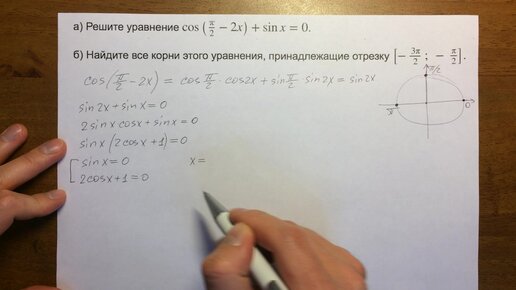 а) Решите уравнение cos (π/2 − 2x) + sin x = 0.
б) Найдите все корни этого уравнения, принадлежащие отрезку [− 3π/2 ; − π/2].
cos(π/2 − 2x) = cos π/2 · cos2x + sin π/2 · sin2x = sin2x
sin2x + sinx = 0
2sinx cosx + sinx = 0
sinx (2cosx + 1) = 0
[ sinx = 0 x =
2cosx + 1 = 0
π/2
π
0